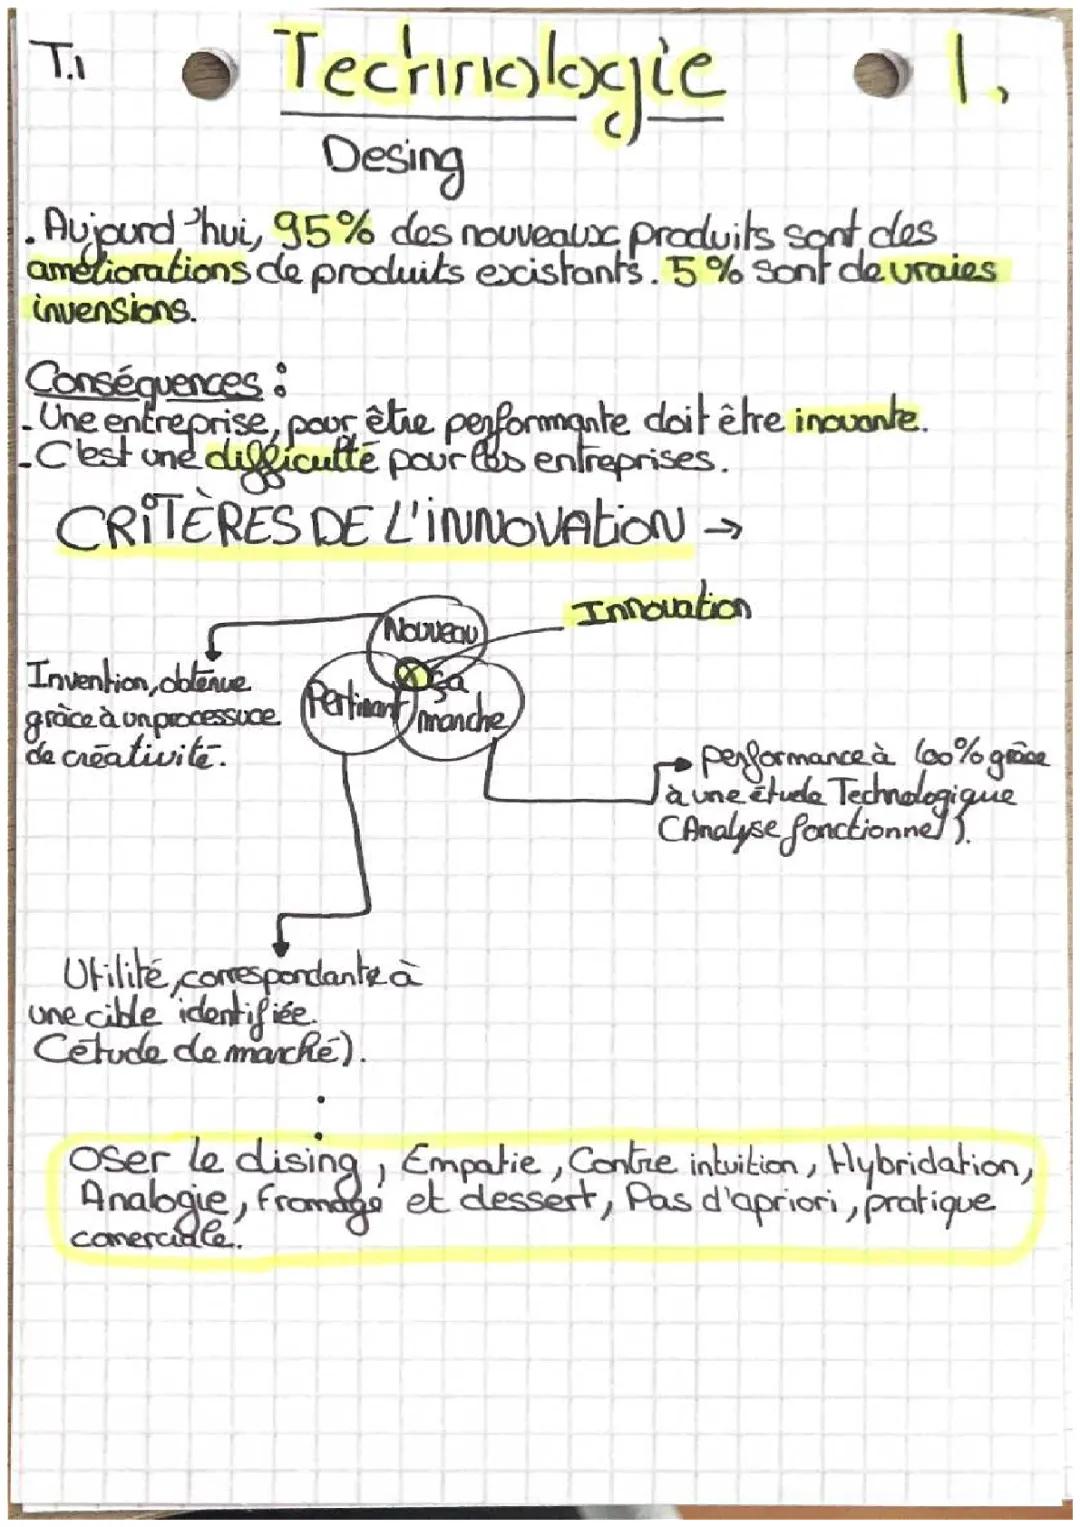 T.1 Technologie 1.
Desing
. Aujourd'hui, 95% des nouveaux produits sont des
améliorations de produits existants. 5% sont de vraies
invensions.
Conséquences :
- Une entreprise, pour être performante doit être inovante.
- C'est une difficulté pour les entreprises.
CRITÈRES DE L'INNOVATION →
Innovation
Nouveau
Pertinant
ça
marche
Invention, obtenue
grâce à un processuce
de créativité.
performance à 100% grâce
à une étude Technologique
(Analyse fonctionnel).
Utilité, correspondante à
une cible identifiée.
(étude de marché).
Oser le dising, Empatie, Contre intuition, Hybridation,
Analogie, fromage et dessert, Pas d'apriori, pratique
comerciale.